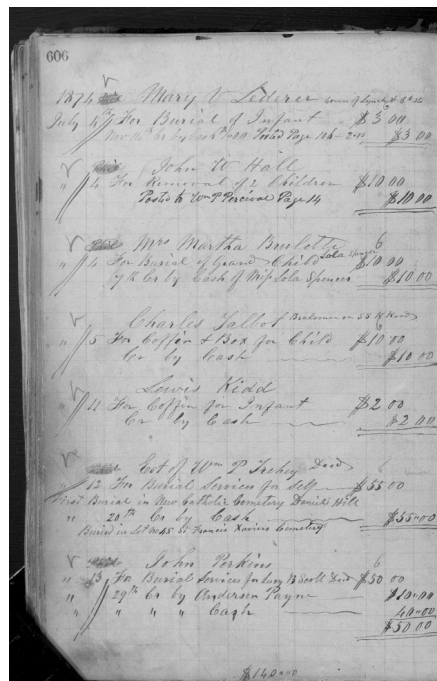 606
1874 Mary V Lederer corner of Lynch & 8th St
July 4 For Burial of Infant $3 00
Nov Cr by Cash Posted Page $3 00
John W Hall
" 4 For Removal of 2 Children $10 00
Posted to Wm P Percival Page 14 $10 00
Mrs Martha
" 4 For Burial of Grand Child Lola Spencer $10 00
7th Cr by Cash of Miss Lola Spencer $10 00
Charles Talbot Brakeman on
" 5 For Coffin & Box for Child $10 00
Cr by Cash $10 00
Lewis Kidd
" 11 For Coffin for Infant $2 00
Cr by Cash $2 00
Est of Wm P Decd
" 12 For Burial Services for self $55 00
First Burial in New Catholic Cemetery Daniel Hill
" 20th Cr by Cash $55 00
Buried in Lot No 45 St Francis Xaviers Cemetery
John Perkins
" 13 For Burial Services for Lucy B Scott Decd $50 00
" 29th Cr by Anderson Payne $10 00
" " " " Cash 40 00
$50 00
$140 00